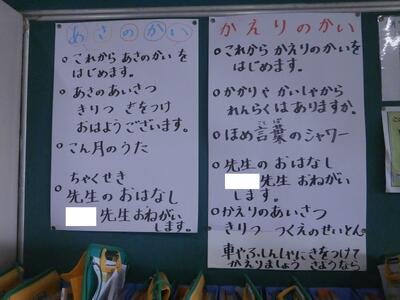 あさのかい
○これから あさのかい を
はじめます。
○あさのあいさつ
きりつ きをつけ
おはようございます。
○こん月のうた
ちゃくせき
○先生の おはなし
先生 おねがい
します。
かえりのかい
○これから かえりのかいを
はじめます。
○かかりや かいしゃから
れんらくは ありますか。
○ほめ言葉のシャワー
ことば
○先生の おはなし
先生 おねがい
します。
○かえりのあいさつ
きりつ つくえのせいとん
車やふしんしゃにきをつけて
かえりましょう さようなら